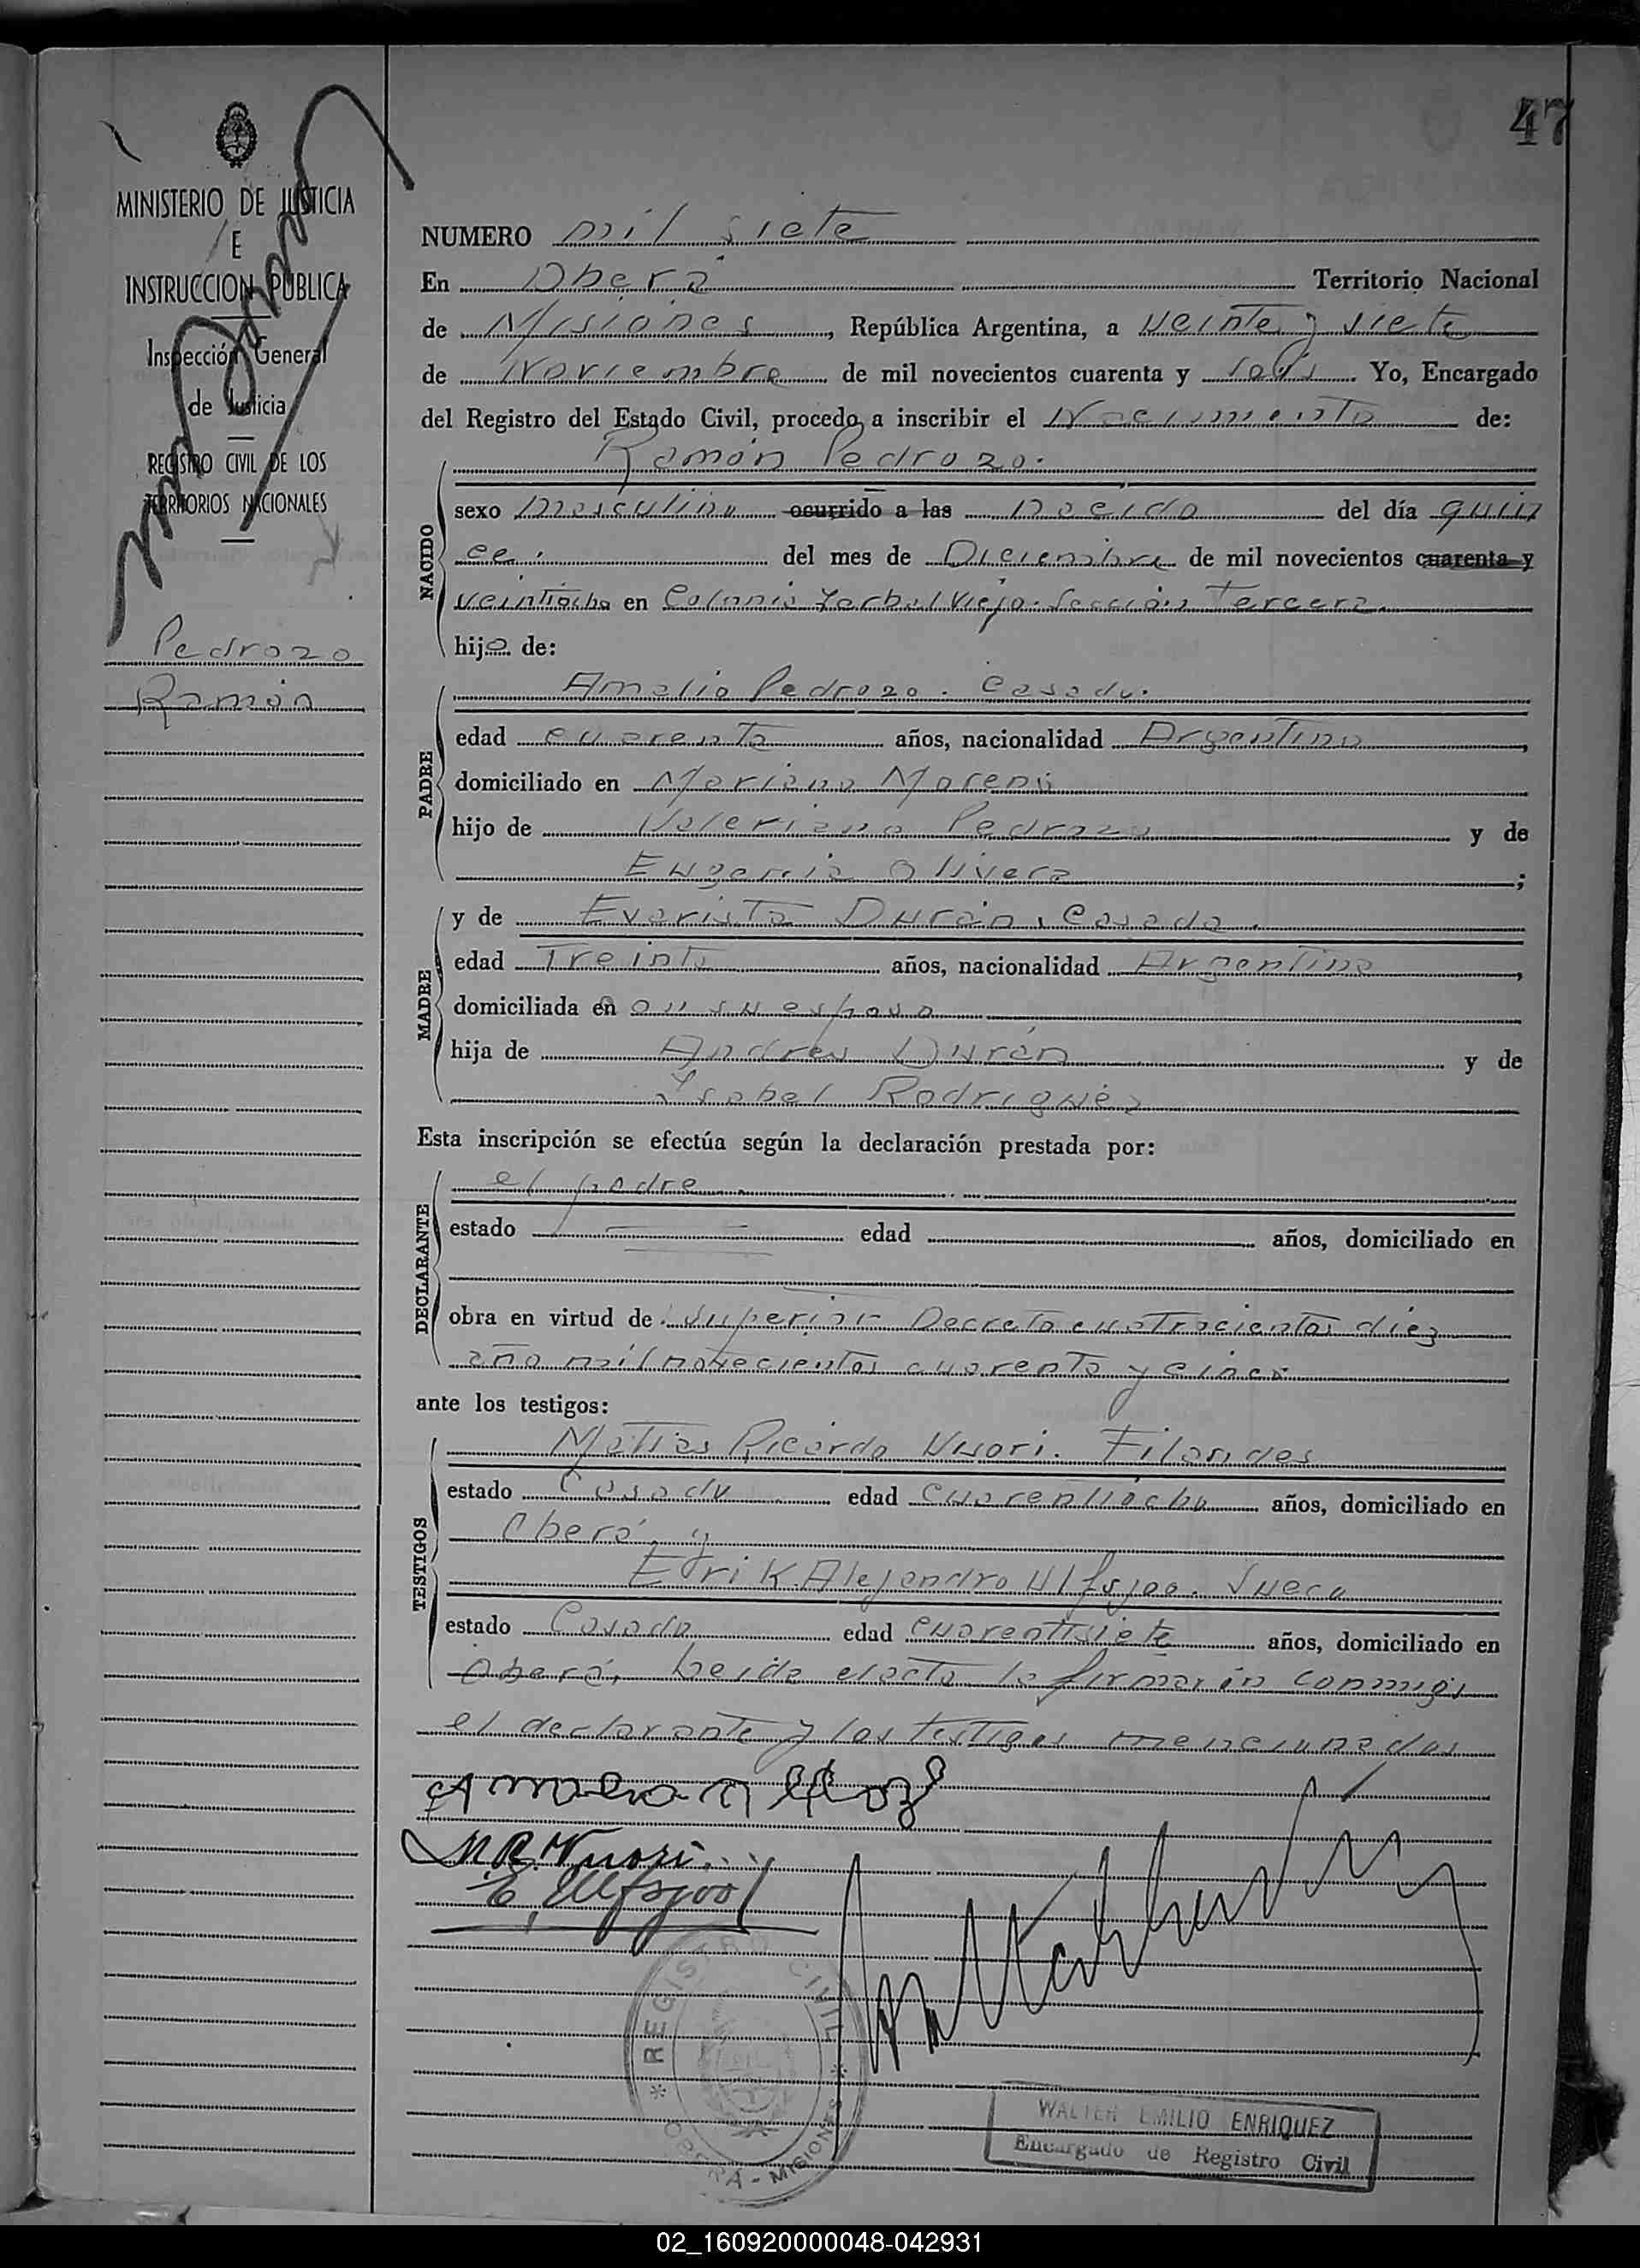 47
MINISTERIO DE JUSTICIA
E
INSTRUCCION PUBLICA
Inspección General
de Justicia
REGISTRO CIVIL DE LOS
TERRITORIOS NACIONALES
Pedrozo
Ramón
NUMERO mil siete
En Oberá Territorio Nacional
de Misiones, República Argentina, a veinte y siete
de Noviembre de mil novecientos cuarenta y seis. Yo, Encargado
del Registro del Estado Civil, procedo a inscribir el Nacimiento de:
NACIDO
Ramón Pedrozo.
sexo masculino ocurrido a las nacido del día quin
ce. del mes de Diciembre de mil novecientos cuarenta y
veintiocho en Colonia Yerbal Viejo. Sección Tercera.
hijo de:
PADRE
Amalio Pedrozo. Casado.
edad cuarenta años, nacionalidad Argentino,
domiciliado en Mariano Moreno
hijo de Valeriano Pedrozo y de
Eugenia Olivera;
MADRE
y de Evarista Durán, Casada.
edad Treinta años, nacionalidad Argentina,
domiciliada en on su esposo
hija de Andres Durán y de
Ysabel Rodriguéz
Esta inscripción se efectúa según la declaración prestada por:
DECLARANTE
el padre
estado edad años, domiciliado en
obra en virtud de: Superior Decreto cuatrocientos diez
año mil novecientos cuarenta y cinco
ante los testigos:
TESTIGOS
Matias Ricardo Nuori. Filandes
estado Casado edad Cuarentiocho años, domiciliado en
Oberá y
Erik Alejandro Ulfsjoo. Sueco
estado Casado edad cuarentisiete años, domiciliado en
Oberá, Leida el acta la firmarón conmigo
el declarante y los testigos mencionados
M. R. Nuori.
E. Ulfsjoo
REGISTRO CIVIL
OBERA - MISIONES
WALTER EMILIO ENRIQUEZ
Encargado de Registro Civil
02_160920000048-042931